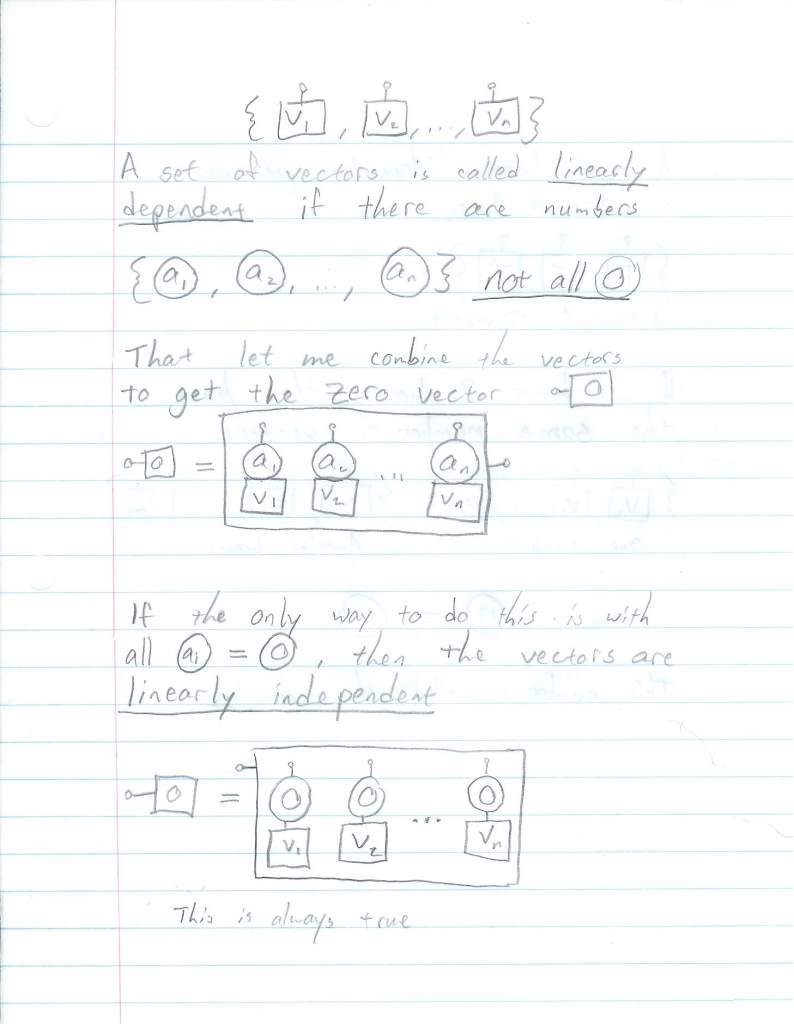 { V1 , V2 , ..., Vn }
A set of vectors is called linearly
dependent if there are numbers
{ a1 , a2 , ..., an } not all 0
That let me combine the vectors
to get the zero vector 0
0 = a1 a2 ... an
V1 V2 Vn
If the only way to do this is with
all ai = 0 , then the vectors are
linearly independent
0 = 0 0 ... 0
V1 V2 Vn
This is always true